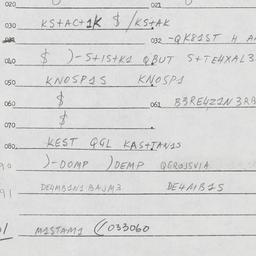 020 021
030 KS+AC+1K $ /KS+AK
031 032 -QK81ST H A
040 $ )-S+IS+K1 QBUT S+TE4XAL3
050 KNOSP1S KNOSP1
060 $ 061 B3RE4Z1N3RB
070 $
080 KEST QGL KAS+IAN1S
90 )-DOMP )DEMP QEROJSVIA
91 DE4MB1N1BAJM3 DE4MB1S
M1STAM1 (033060